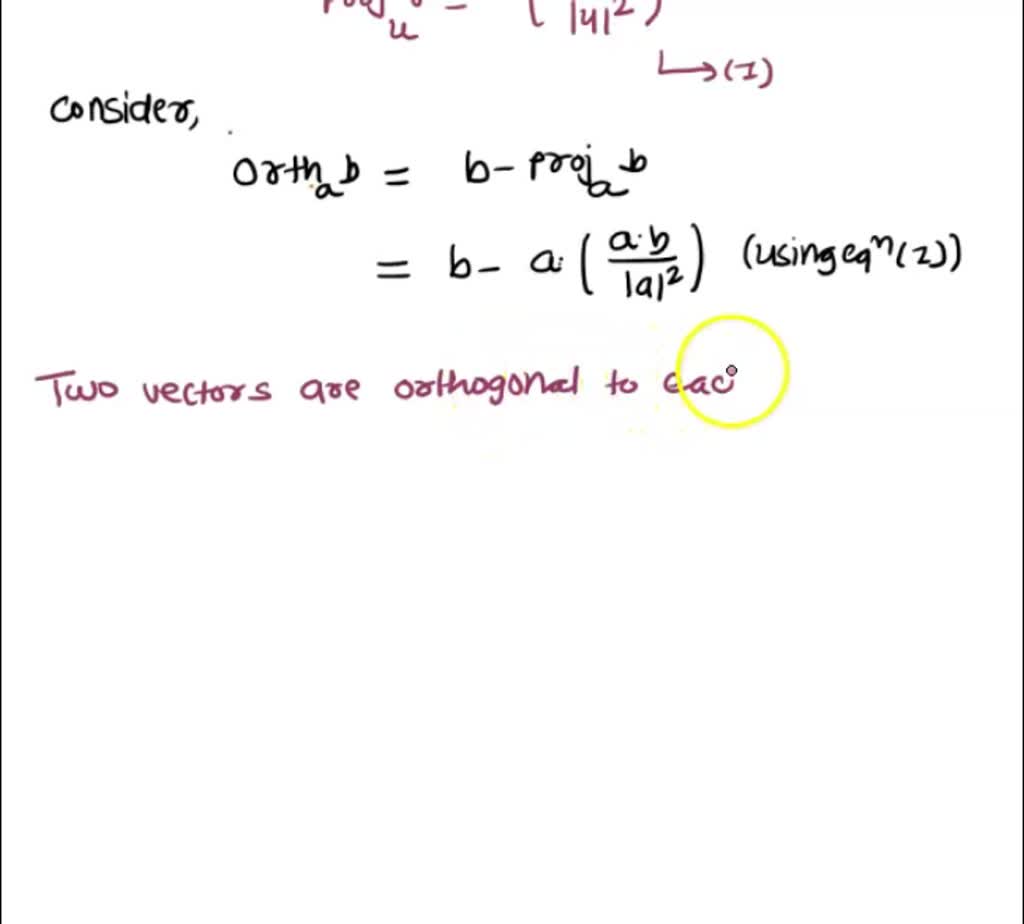 u = ( |u|² )
↳(1)
consider,
Orthₐb = b - projₐb
= b - a (a·b / |a|²) (using eqⁿ(1))
Two vectors are orthogonal to eac